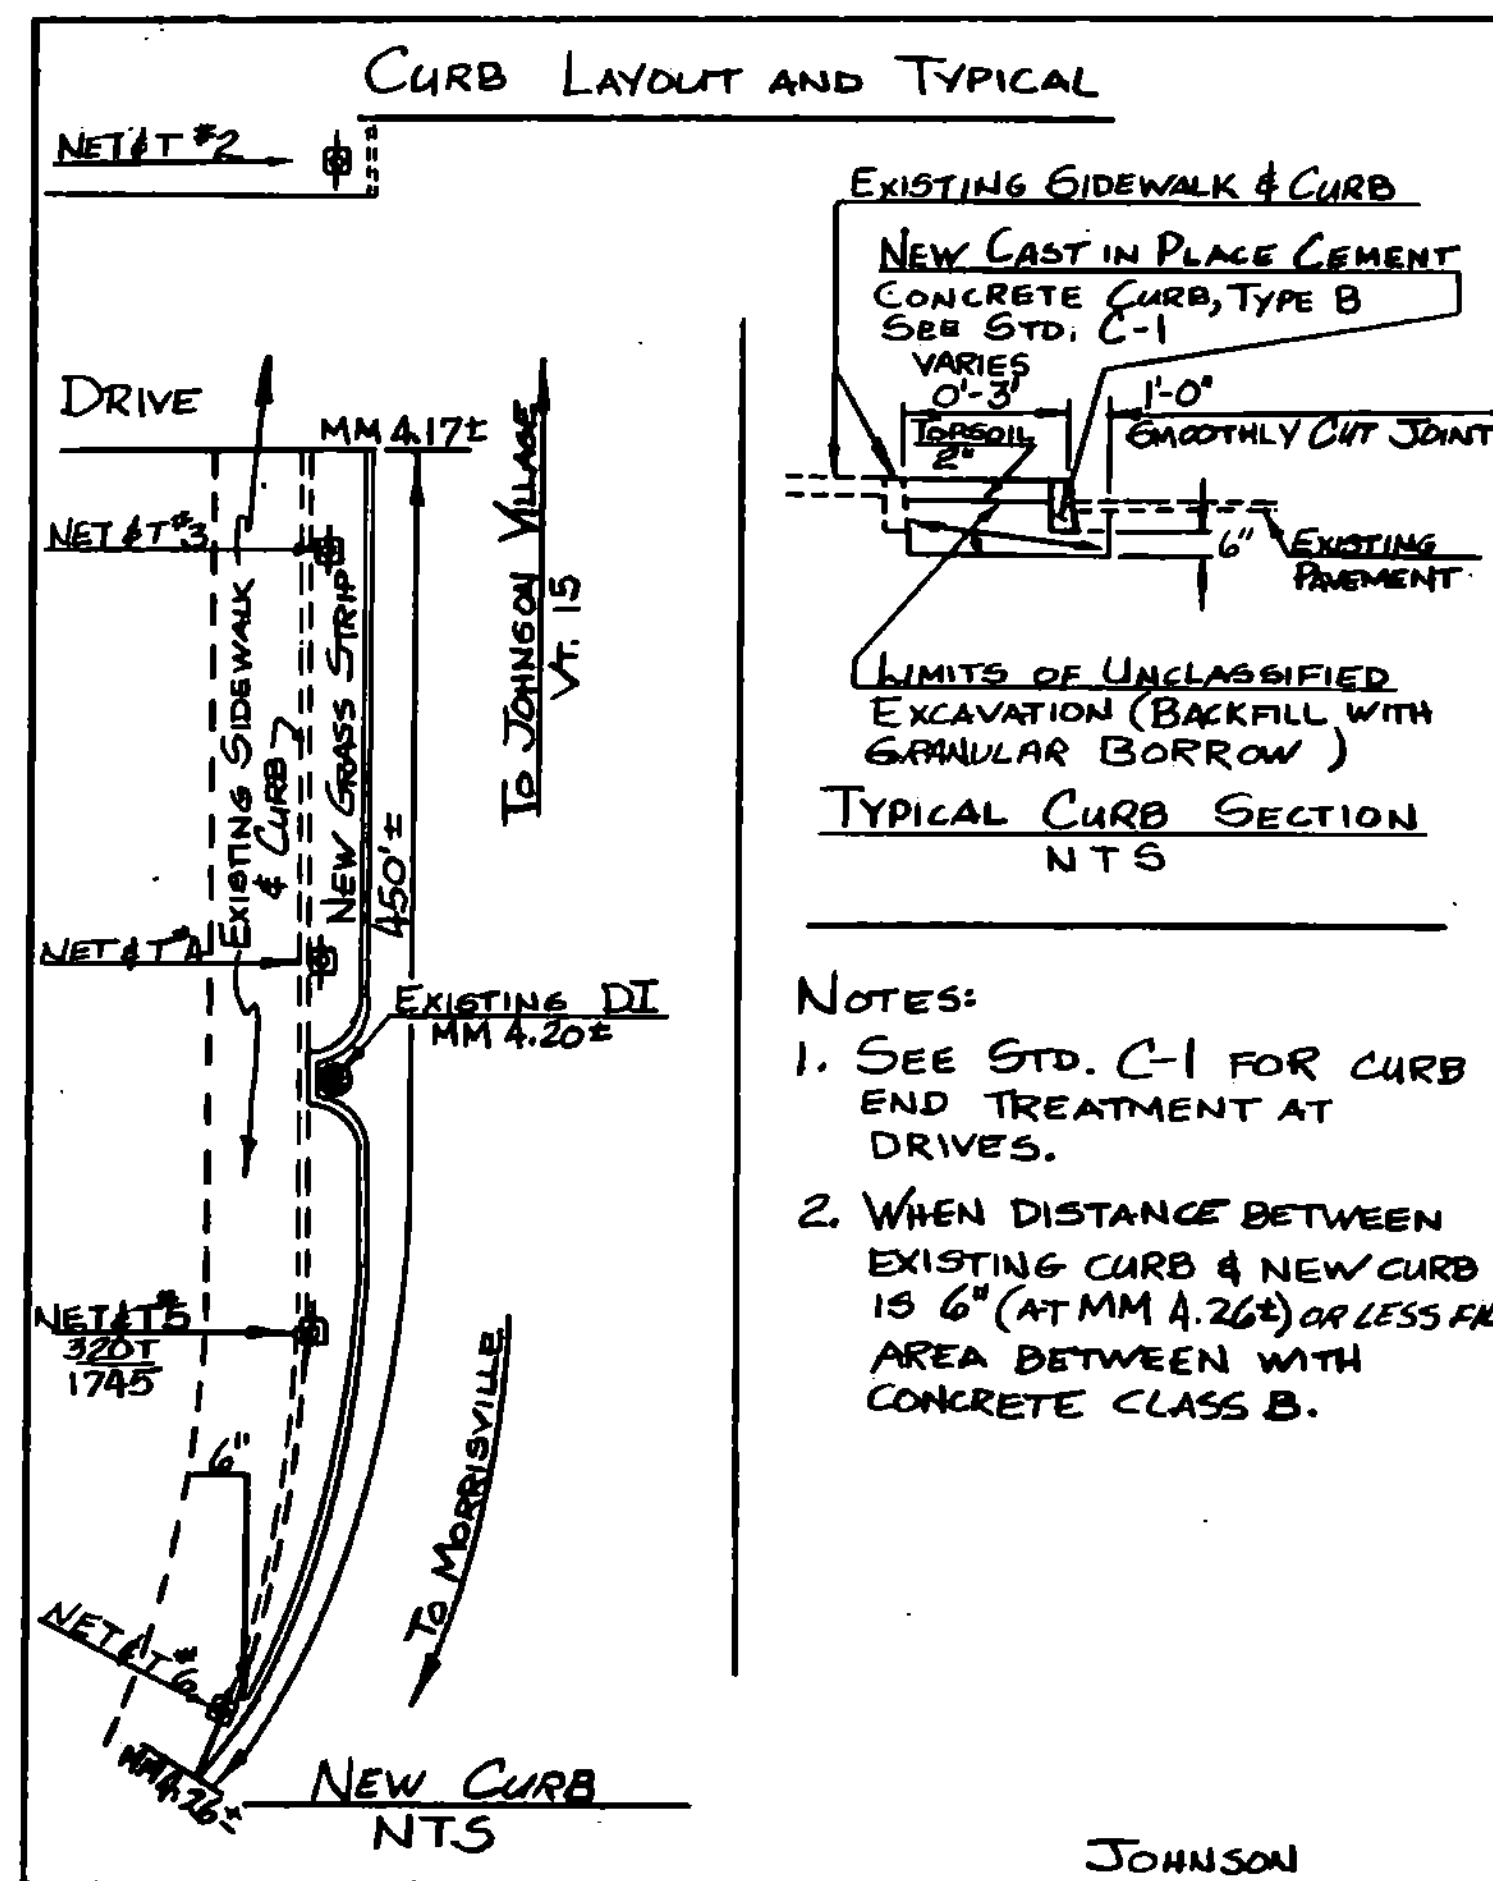 CURB LAYOUT AND TYPICAL
NET & T #2
DRIVE
MM 4.17±
NET & T #3
EXISTING SIDEWALK
& CURB
NEW GRASS STRIP
450'±
TO JOHNSON VILLAGE
VT. 15
NET & T #4
EXISTING DI
MM 4.20±
NET & T #5
320T
1745
6"
TO MORRISVILLE
NET & T #6
MM 4.26±
NEW CURB
NTS
EXISTING SIDEWALK & CURB
NEW CAST IN PLACE CEMENT
CONCRETE CURB, TYPE B
SEE STD. C-1
VARIES
0'-3'
1'-0"
TOPSOIL
2"
SMOOTHLY CUT JOINT
6"
EXISTING
PAVEMENT
LIMITS OF UNCLASSIFIED
EXCAVATION (BACKFILL WITH
GRANULAR BORROW)
TYPICAL CURB SECTION
NTS
NOTES:
1. SEE STD. C-1 FOR CURB
END TREATMENT AT
DRIVES.
2. WHEN DISTANCE BETWEEN
EXISTING CURB & NEW CURB
IS 6" (AT MM 4.26±) OR LESS
AREA BETWEEN WITH
CONCRETE CLASS B.
JOHNSON